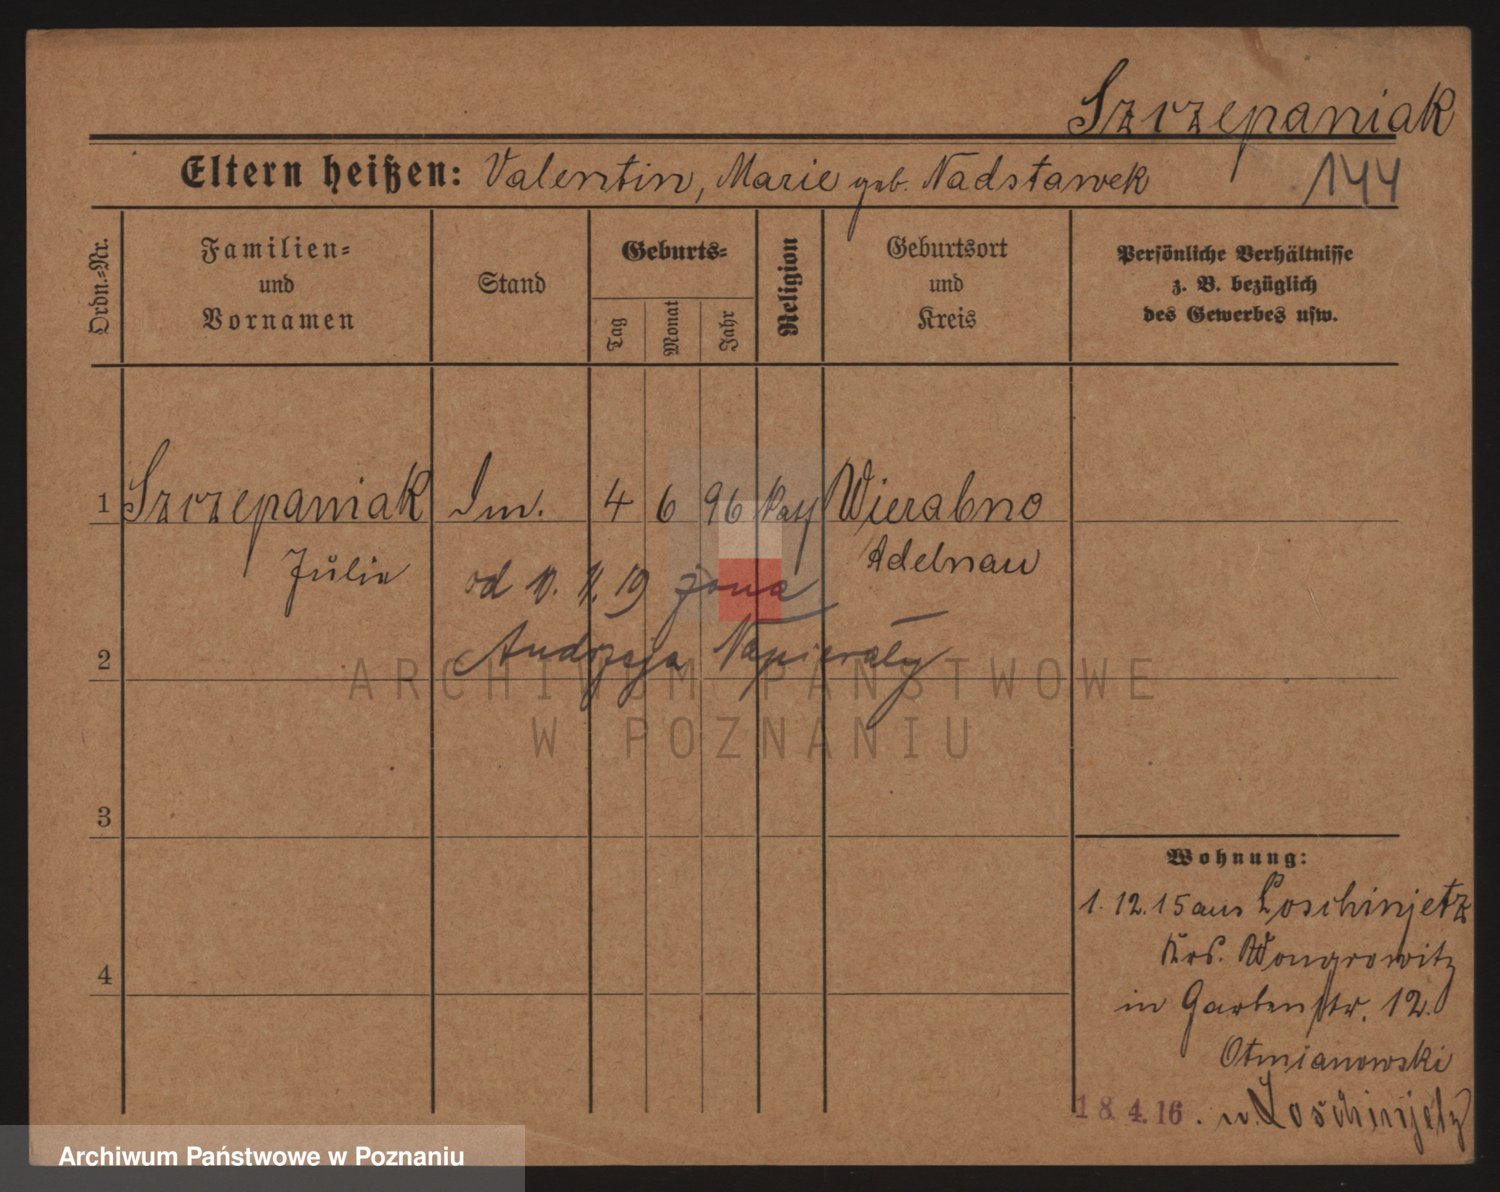 Szczepaniak
Eltern heißen: Valentin, Marie geb. Nadstawek
144
Ordn.-Nr.
Familien-
und
Vornamen
Stand
Geburts-
Tag
Monat
Jahr
Religion
Geburtsort
und
Kreis
Persönliche Verhältnisse
z. B. bezüglich
des Gewerbes usw.
1 Szczepaniak 4 6 96 kath Wierabno
Julie Adelnau
od 10. 11. 19 żona
2 Andrzeja Napierały
ARCHIWUM PAŃSTWOWE
W POZNANIU
3
4
Wohnung:
1. 12. 15 aus Loschinjetz
Krs. Wongrowitz
in Gartenstr. 12.
Otmianowski
18. 4. 16. n. Loschinjetz
Archiwum Państwowe w Poznaniu